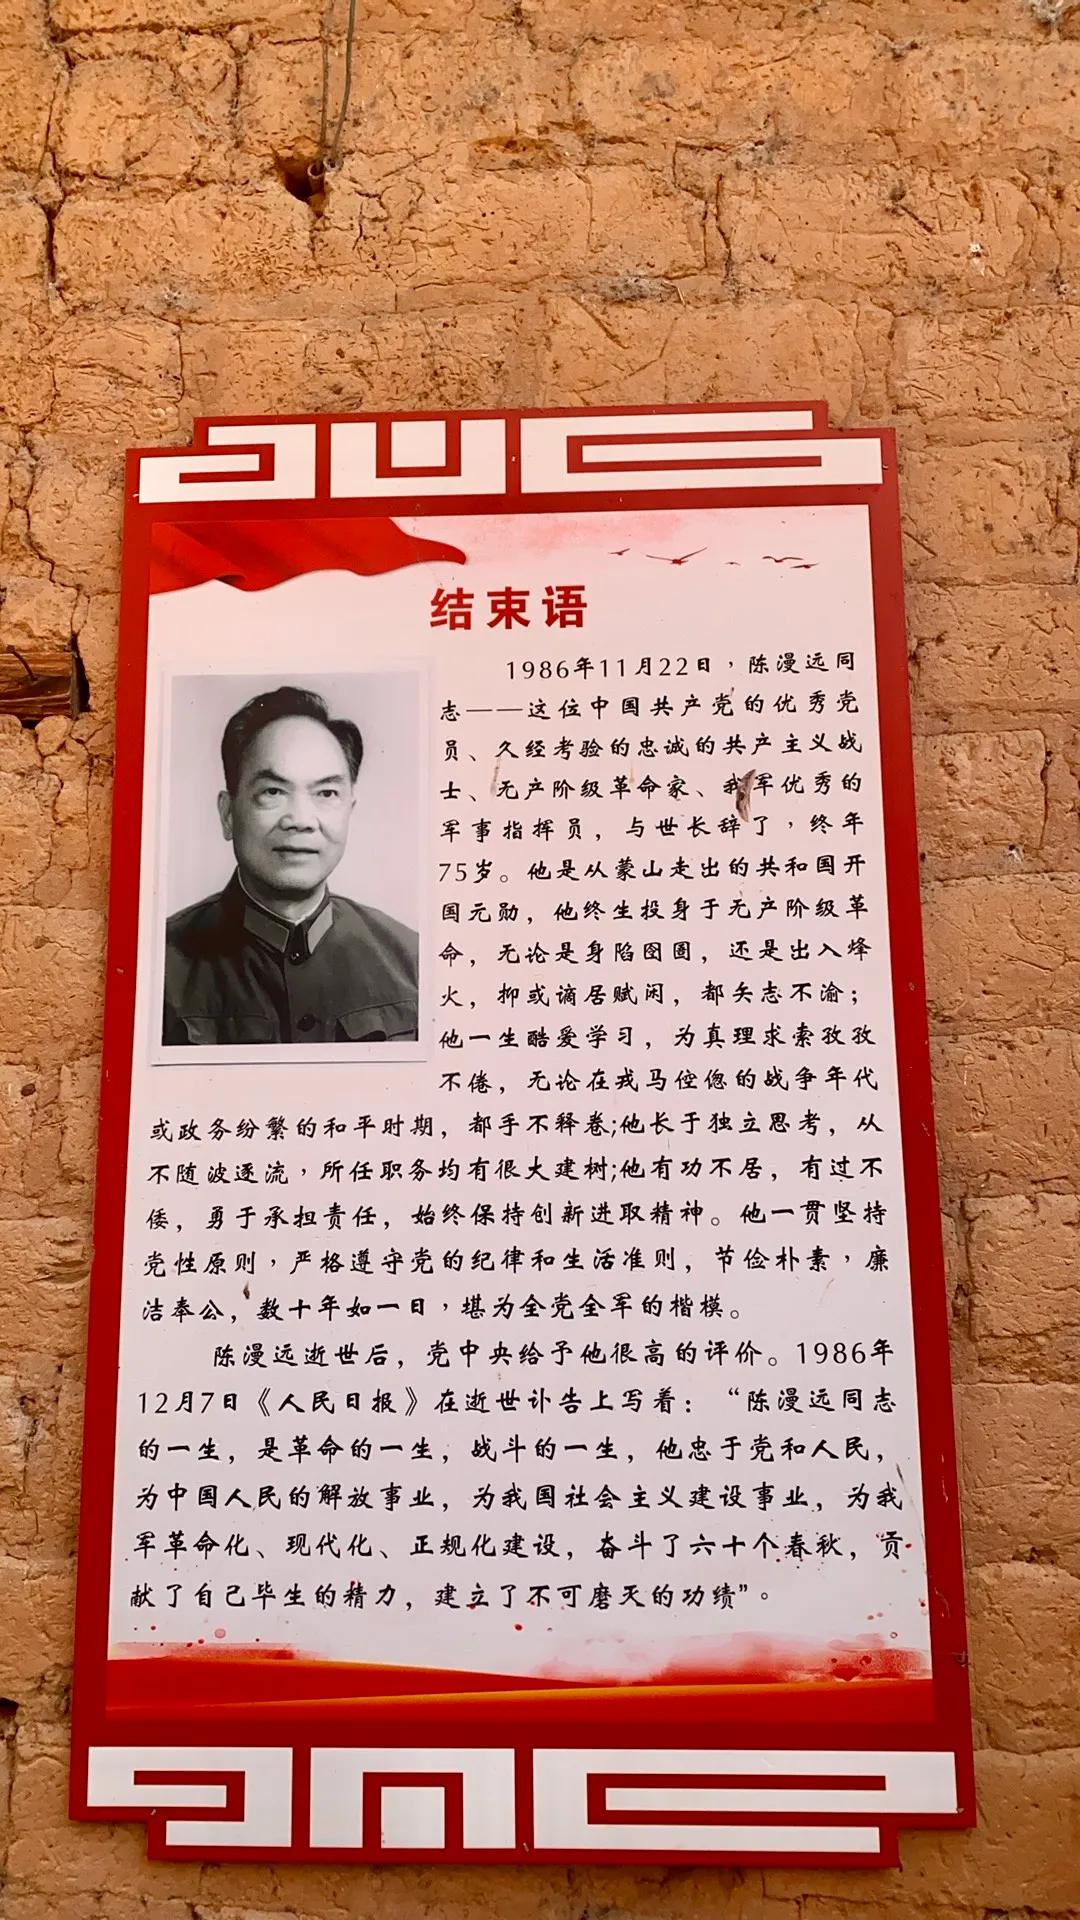 结束语
1986年11月22日，陈漫远同
志——这位中国共产党的优秀党
员、久经考验的忠诚的共产主义战
士、无产阶级革命家、我军优秀的
军事指挥员，与世长辞了，终年
75岁。他是从蒙山走出的共和国开
国元勋，他终生投身于无产阶级革
命，无论是身陷囹圄，还是出入烽
火，抑或谪居赋闲，都矢志不渝；
他一生酷爱学习，为真理求索孜孜
不倦，无论在戎马倥偬的战争年代
或政务纷繁的和平时期，都手不释卷;他长于独立思考，从
不随波逐流，所任职务均有很大建树;他有功不居，有过不
倭，勇于承担责任，始终保持创新进取精神。他一贯坚持
党性原则，严格遵守党的纪律和生活准则，节俭朴素，廉
洁奉公，数十年如一日，堪为全党全军的楷模。
陈漫远逝世后，党中央给予他很高的评价。1986年
12月7日《人民日报》在逝世讣告上写着：“陈漫远同志
的一生，是革命的一生，战斗的一生，他忠于党和人民，
为中国人民的解放事业，为我国社会主义建设事业，为我
军革命化、现代化、正规化建设，奋斗了六十个春秋，贡
献了自己毕生的精力，建立了不可磨灭的功绩”。